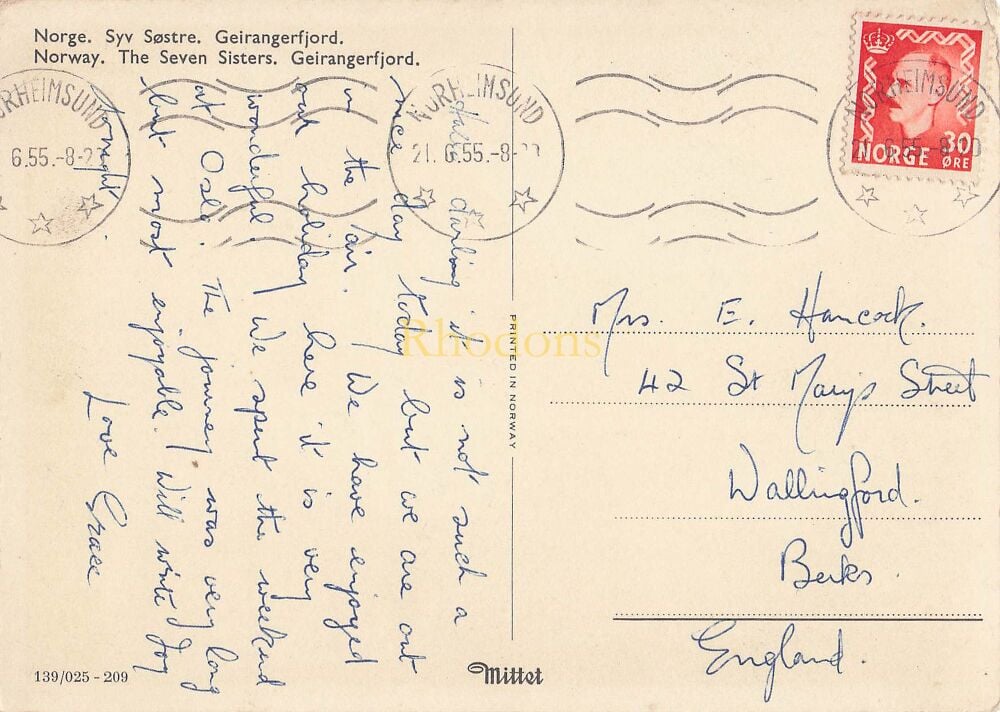 Norge. Syv Søstre. Geirangerfjord.
Norway. The Seven Sisters. Geirangerfjord.
NORHEIMSUND
6.55.-8-
NORHEIMSUND
21. 6.55.-8-
NORHEIMSUND
21. 6.55.-8-
30
NORGE ØRE
darling it is not such a
nice day today but we are out
in the air. We have enjoyed
our holiday here it is very
wonderful. We spent the weekend
at Oslo. The journey was very long
but most enjoyable. Will write Joy
tonight.
Love Grace
PRINTED IN NORWAY
Rhodons
Mrs. E. Hancock.
42 St Marys Street
Wallingford.
Berks.
England.
139/025 - 209
Mittet